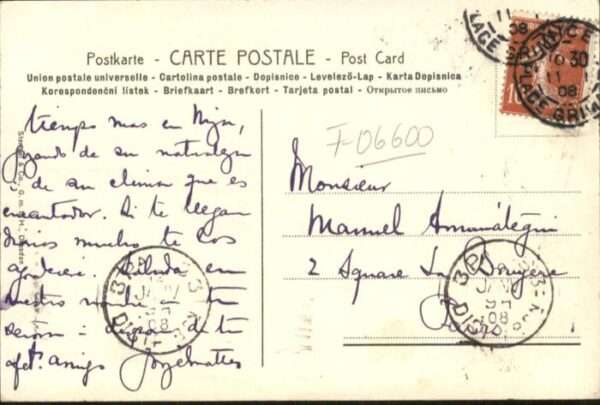 Postkarte - CARTE POSTALE - Post Card
Union postale universelle - Cartolina postale - Dopisnice - Levelező-Lap - Karta Dopisnica
Korespondenční lístek - Briefkaart - Brefkort - Tarjeta postal - Открытое письмо
tiempo mas en Niza,
gozando de su naturaleza
i de su clima que es
encantador. Si te llegan
diarios mucho te los
agradeceré. Saluda en
nuestro nombre a tu
señora i dispon de tu
afto. amigo
F-06600
Monsieur
Manuel Amunátegui
2 Square La Bruyere
Paris
NICE
PLACE GRIMALDI
30
11
08
10
DISTR
08